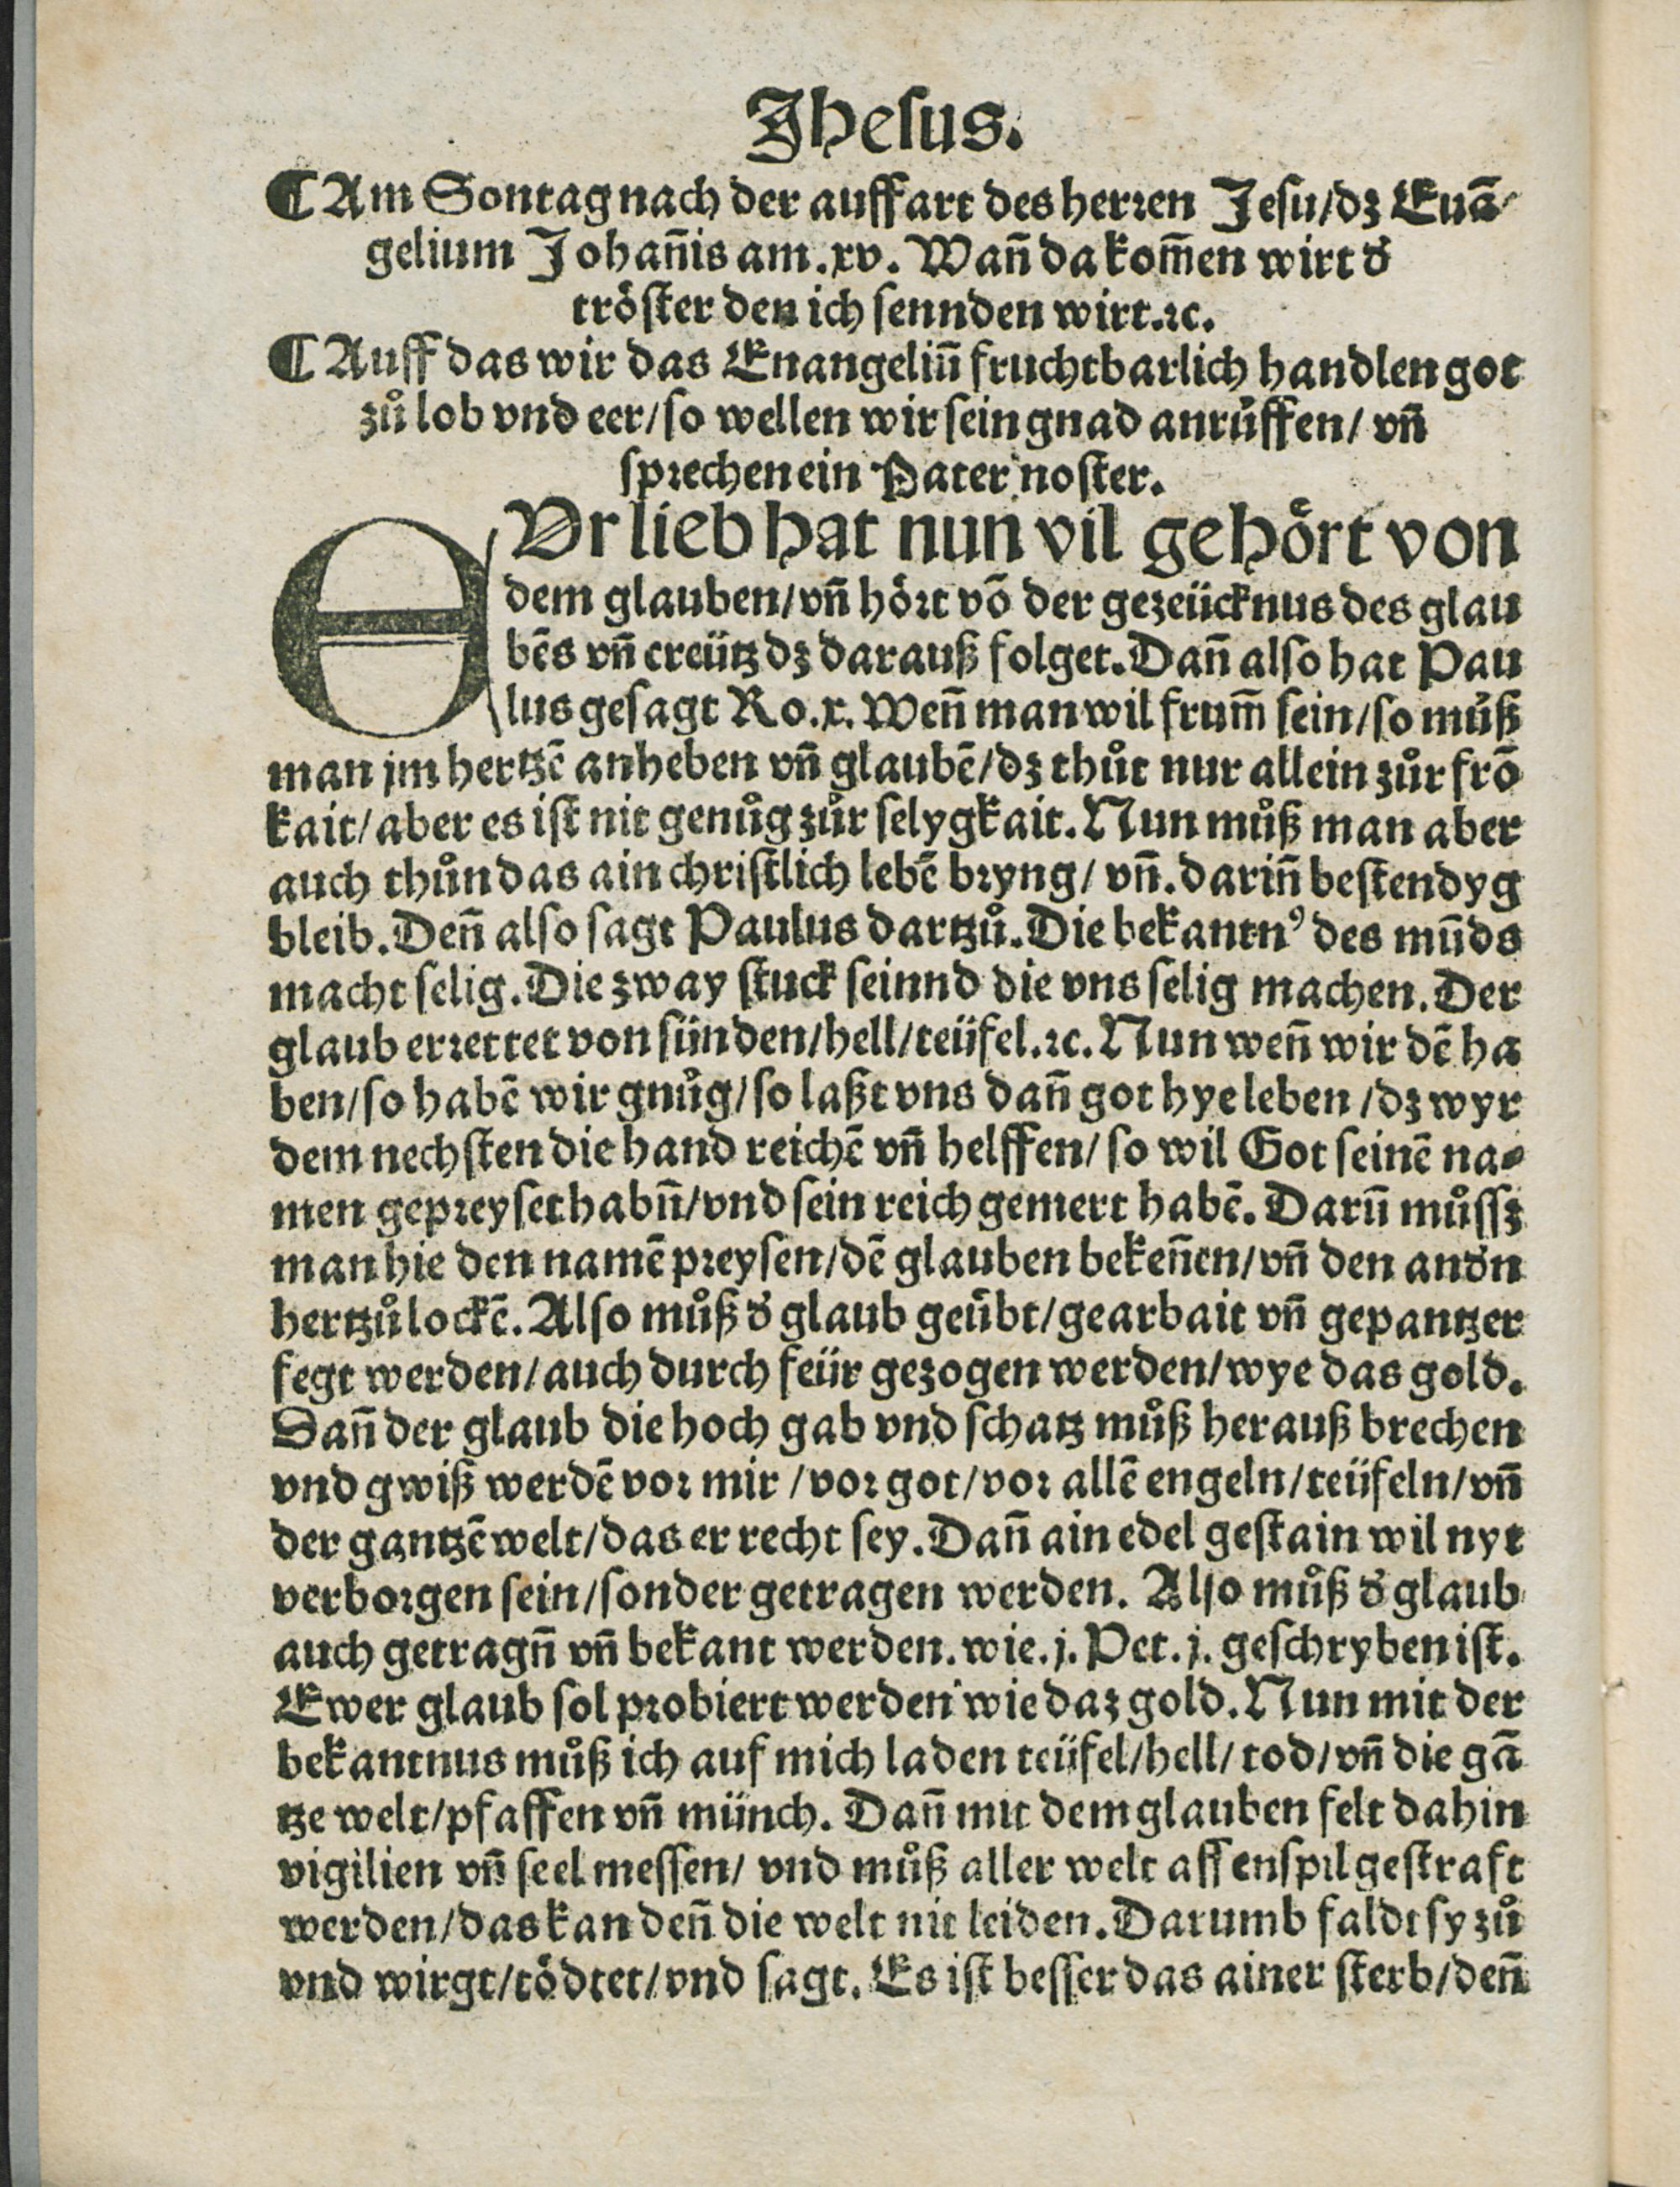 Jhesus.
¶ Am Sontag nach der auffart des herꝛen Jesu/dz Euã⸗
gelium Johañis am.xv. Wañ da kom̃en wirt d̕
tröster den ich sennden wirt.ꝛc.
¶ Auff das wir das Enangeliũ fruchtbarlich handlen got
zů lob vnd eer/so wellen wir sein gnad anrůffen/ vñ
spꝛechen ein Pater noster.
EVr lieb hat nun vil gehört von
dem glauben/vñ höꝛt võ der gezeücknus des glau
bẽs vñ creütz dz darauß folget. Dañ also hat Pau
lus gesagt Ro.x. Weñ man wil frum̃ sein/so můß
man jm hertzẽ anheben vñ glaubẽ/dz thůt nur allein zůr frõ
kait/aber es ist nit genůg zůr selygkait. Nun můß man aber
auch thůn das ain christlich lebẽ bꝛyng/ vñ.dariñ bestendyg
bleib. Deñ also sagt Paulus dartzů. Die bekantnꝰ des mũds
macht selig. Die zway stuck seinnd die vns selig machen. Der
glaub erꝛettet von sünden/hell/teüfel.ꝛc. Nun weñ wir dẽ ha
ben/so habẽ wir gnůg/so laßt vns dañ got hye leben /dz wyr
dem nechsten die hand reichẽ vñ helffen/ so wil Got seinẽ na⸗
men gepꝛeyset habñ/vnd sein reich gemert habẽ. Darũ můssz
man hie den namẽ pꝛeysen/dẽ glauben bekeñen/vñ den and̕n
hertzů lockẽ. Also můß d̕ glaub geübt/gearbait vñ gepantzer
fegt werden/auch durch feür gezogen werden/wye das gold.
Dañ der glaub die hoch gab vnd schatz můß herauß brechen
vnd gwiß werdẽ voꝛ mir /voꝛ got/voꝛ allẽ engeln/teüfeln/vñ
der gantzẽ welt/das er recht sey. Dañ ain edel gestain wil nyt
verboꝛgen sein/sonder getragen werden. Also můß d̕ glaub
auch getragñ vñ bekant werden. wie.j. Pet. j. geschryben ist.
Ewer glaub sol pꝛobiert werden wie daz gold. Nun mit der
bekantnus můß ich auf mich laden teüfel/hell/ tod/vñ die gã
tze welt/pfaffen vñ münch. Dañ mit dem glauben felt dahin
vigilien vñ seel messen/ vnd můß aller welt affenspil gestraft
werden/das kan deñ die welt nit leiden. Darumb faldt sy zů
vnd wirgt/tödtet/vnd sagt. Es ist besser das ainer sterb/deñ